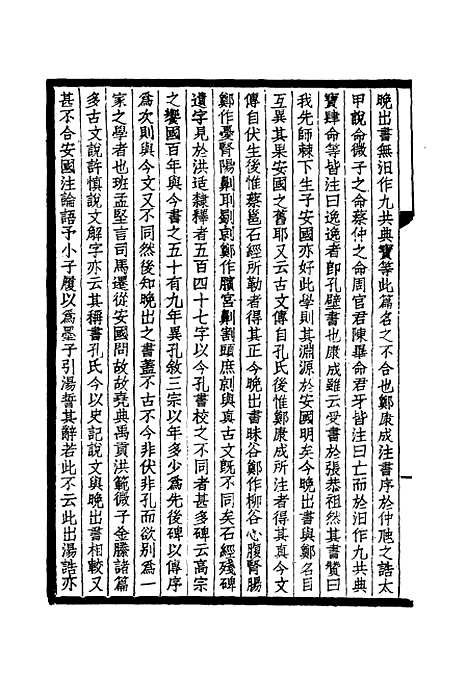 晚出書無汨作九共典寶等此篇名之不合也鄭康成注書序於仲虺之誥太
甲說命微子之命蔡仲之命周官君陳畢命君牙皆注曰亡而於汨作九共典
寶肆命等皆注曰逸逸者即孔壁書也康成雖云受書於張恭祖然其書贊曰
我先師棘下生子安國亦好此學則其淵源於安國明矣今晚出書與鄭名目
互異其果安國之舊耶又云古文傳自孔氏後惟鄭康成所注者得其真今文
傳自伏生後惟蔡邕石經所勒者得其正今晚出書昧谷鄭作柳谷心腹腎腸
鄭作憂腎陽劓刵劅剠鄭作臏宮劓割頭庶剠與真古文既不同矣石經殘碑
遺字見於洪适隸釋者五百四十七字以今孔書校之不同者甚多碑云高宗
之饗國百年與今書之五十有九年異孔敘三宗以年多少為先後碑以傳序
為次則與今文又不同然後知晚出之書蓋不古不今非伏非孔而欲別為一
家之學者也班孟堅言司馬遷從安國問故故堯典禹貢洪範微子金縢諸篇
多古文說許慎說文解字亦云其稱書孔氏今以史記說文與晚出書相較又
甚不合安國注論語予小子履以為墨子引湯誓其辭若此不云此出湯誥亦